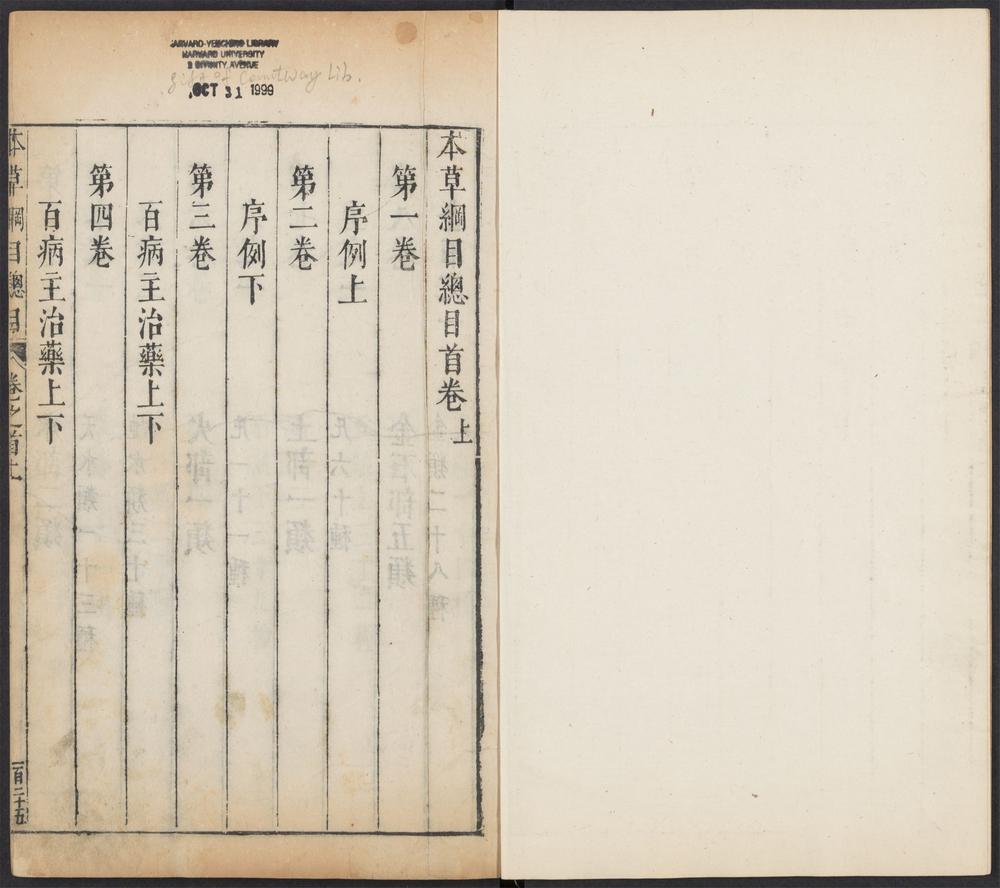 HARVARD-YENCHING LIBRARY
HARVARD UNIVERSITY
2 DIVINITY AVENUE
gift of Countway Lib.
OCT 31 1999
本草綱目總目首卷上
第一卷
序例上
第二卷
序例下
第三卷
百病主治藥上下
第四卷
百病主治藥上下
本草綱目總目 卷之首上
一百二十五